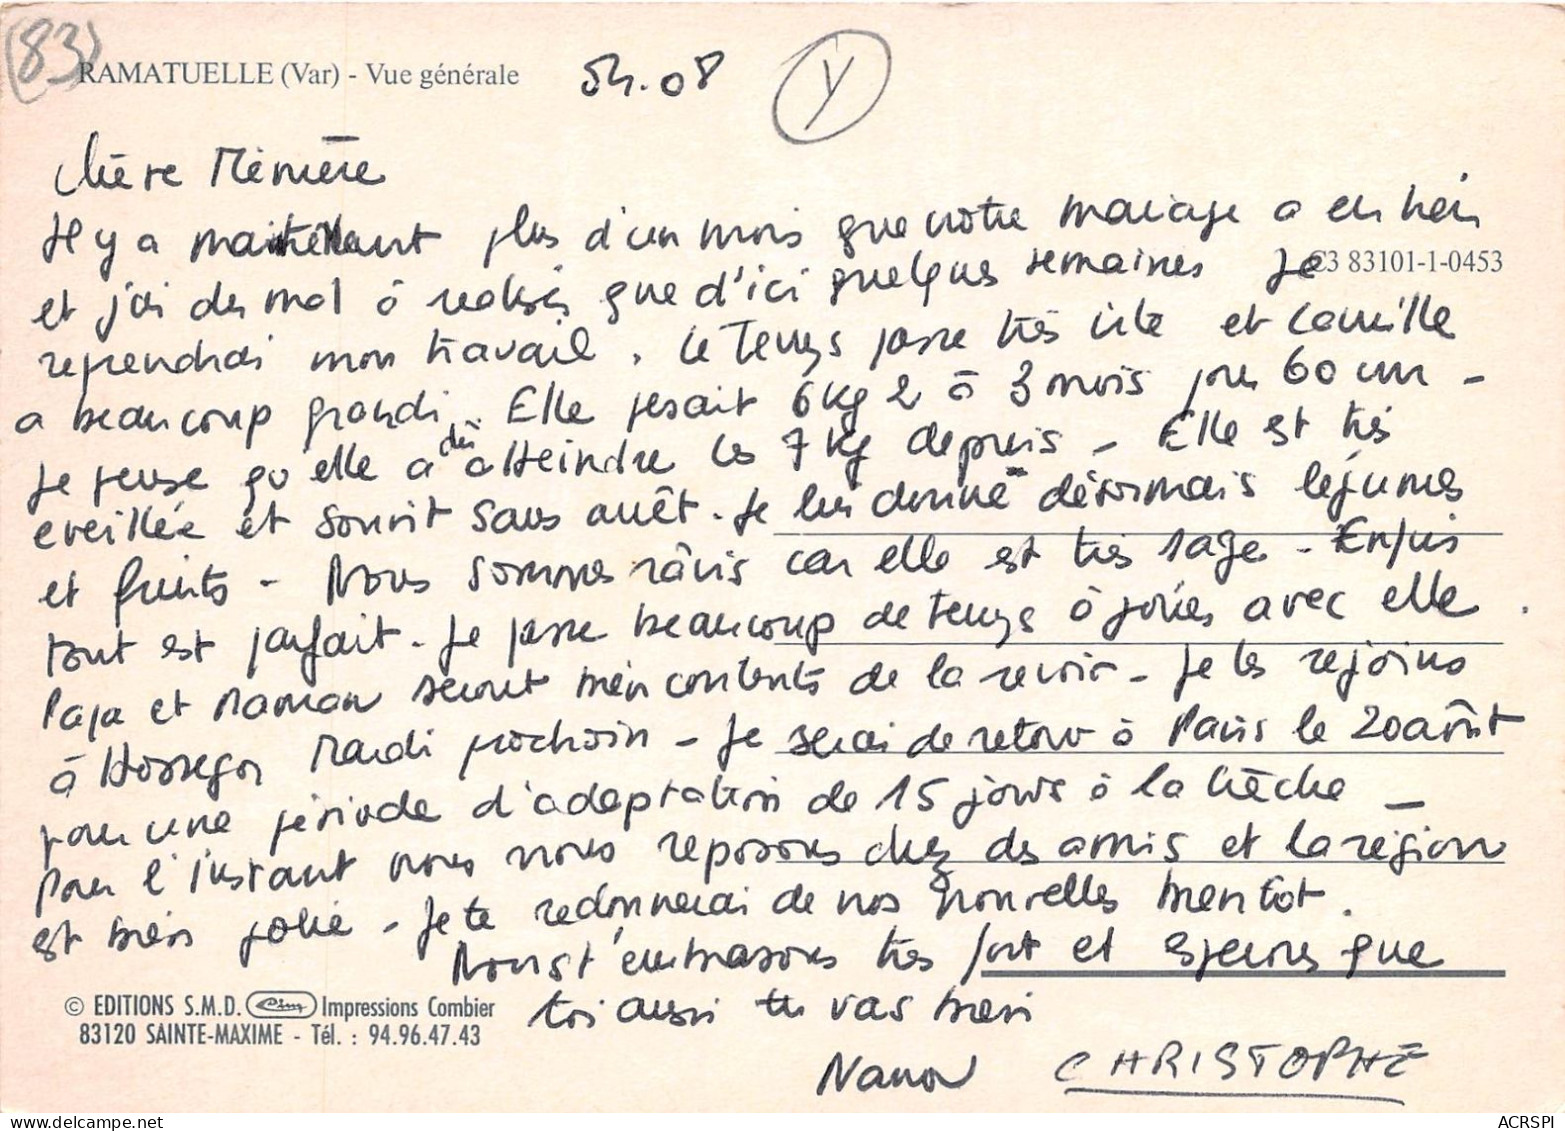 (83)
RAMATUELLE (Var) - Vue générale
54.08
Y
Chère Mémère
Il y a maintenant plus d'un mois que notre mariage a eu lieu
C3 83101-1-0453
et j'ai du mal à realiser que d'ici quelques semaines je
reprendrai mon travail. Le Temps passe très vite et Camille
a beaucoup grandi. Elle pesait 6kg2 à 3 mois pour 60 cm -
Je pense qu'elle a dû atteindre les 7kg depuis - Elle est très
eveillée et sourit sans arrêt. Je lui donne désormais légumes
et fruits - Nous sommes râvis car elle est très sage - Enfin
tout est parfait. Je passe beaucoup de temps à jouer avec elle.
Papa et Maman seront bien contents de la revoir - Je les rejoins
à Hossegor Mardi prochain - Je serai de retour à Paris le 20 août
pour une période d'adaptation de 15 jours à la crèche -
Pour l'instant nous nous reposons chez des amis et la région
est bien jolie - Je te redonnerai de nos nouvelles bientôt.
Nous t'embrassons très fort et espérons que
toi aussi tu vas bien
© EDITIONS S.M.D. Cim Impressions Combier
83120 SAINTE-MAXIME - Tél. : 94.96.47.43
Nanou CHRISTOPHE
ACRSPI
www.delcampe.net